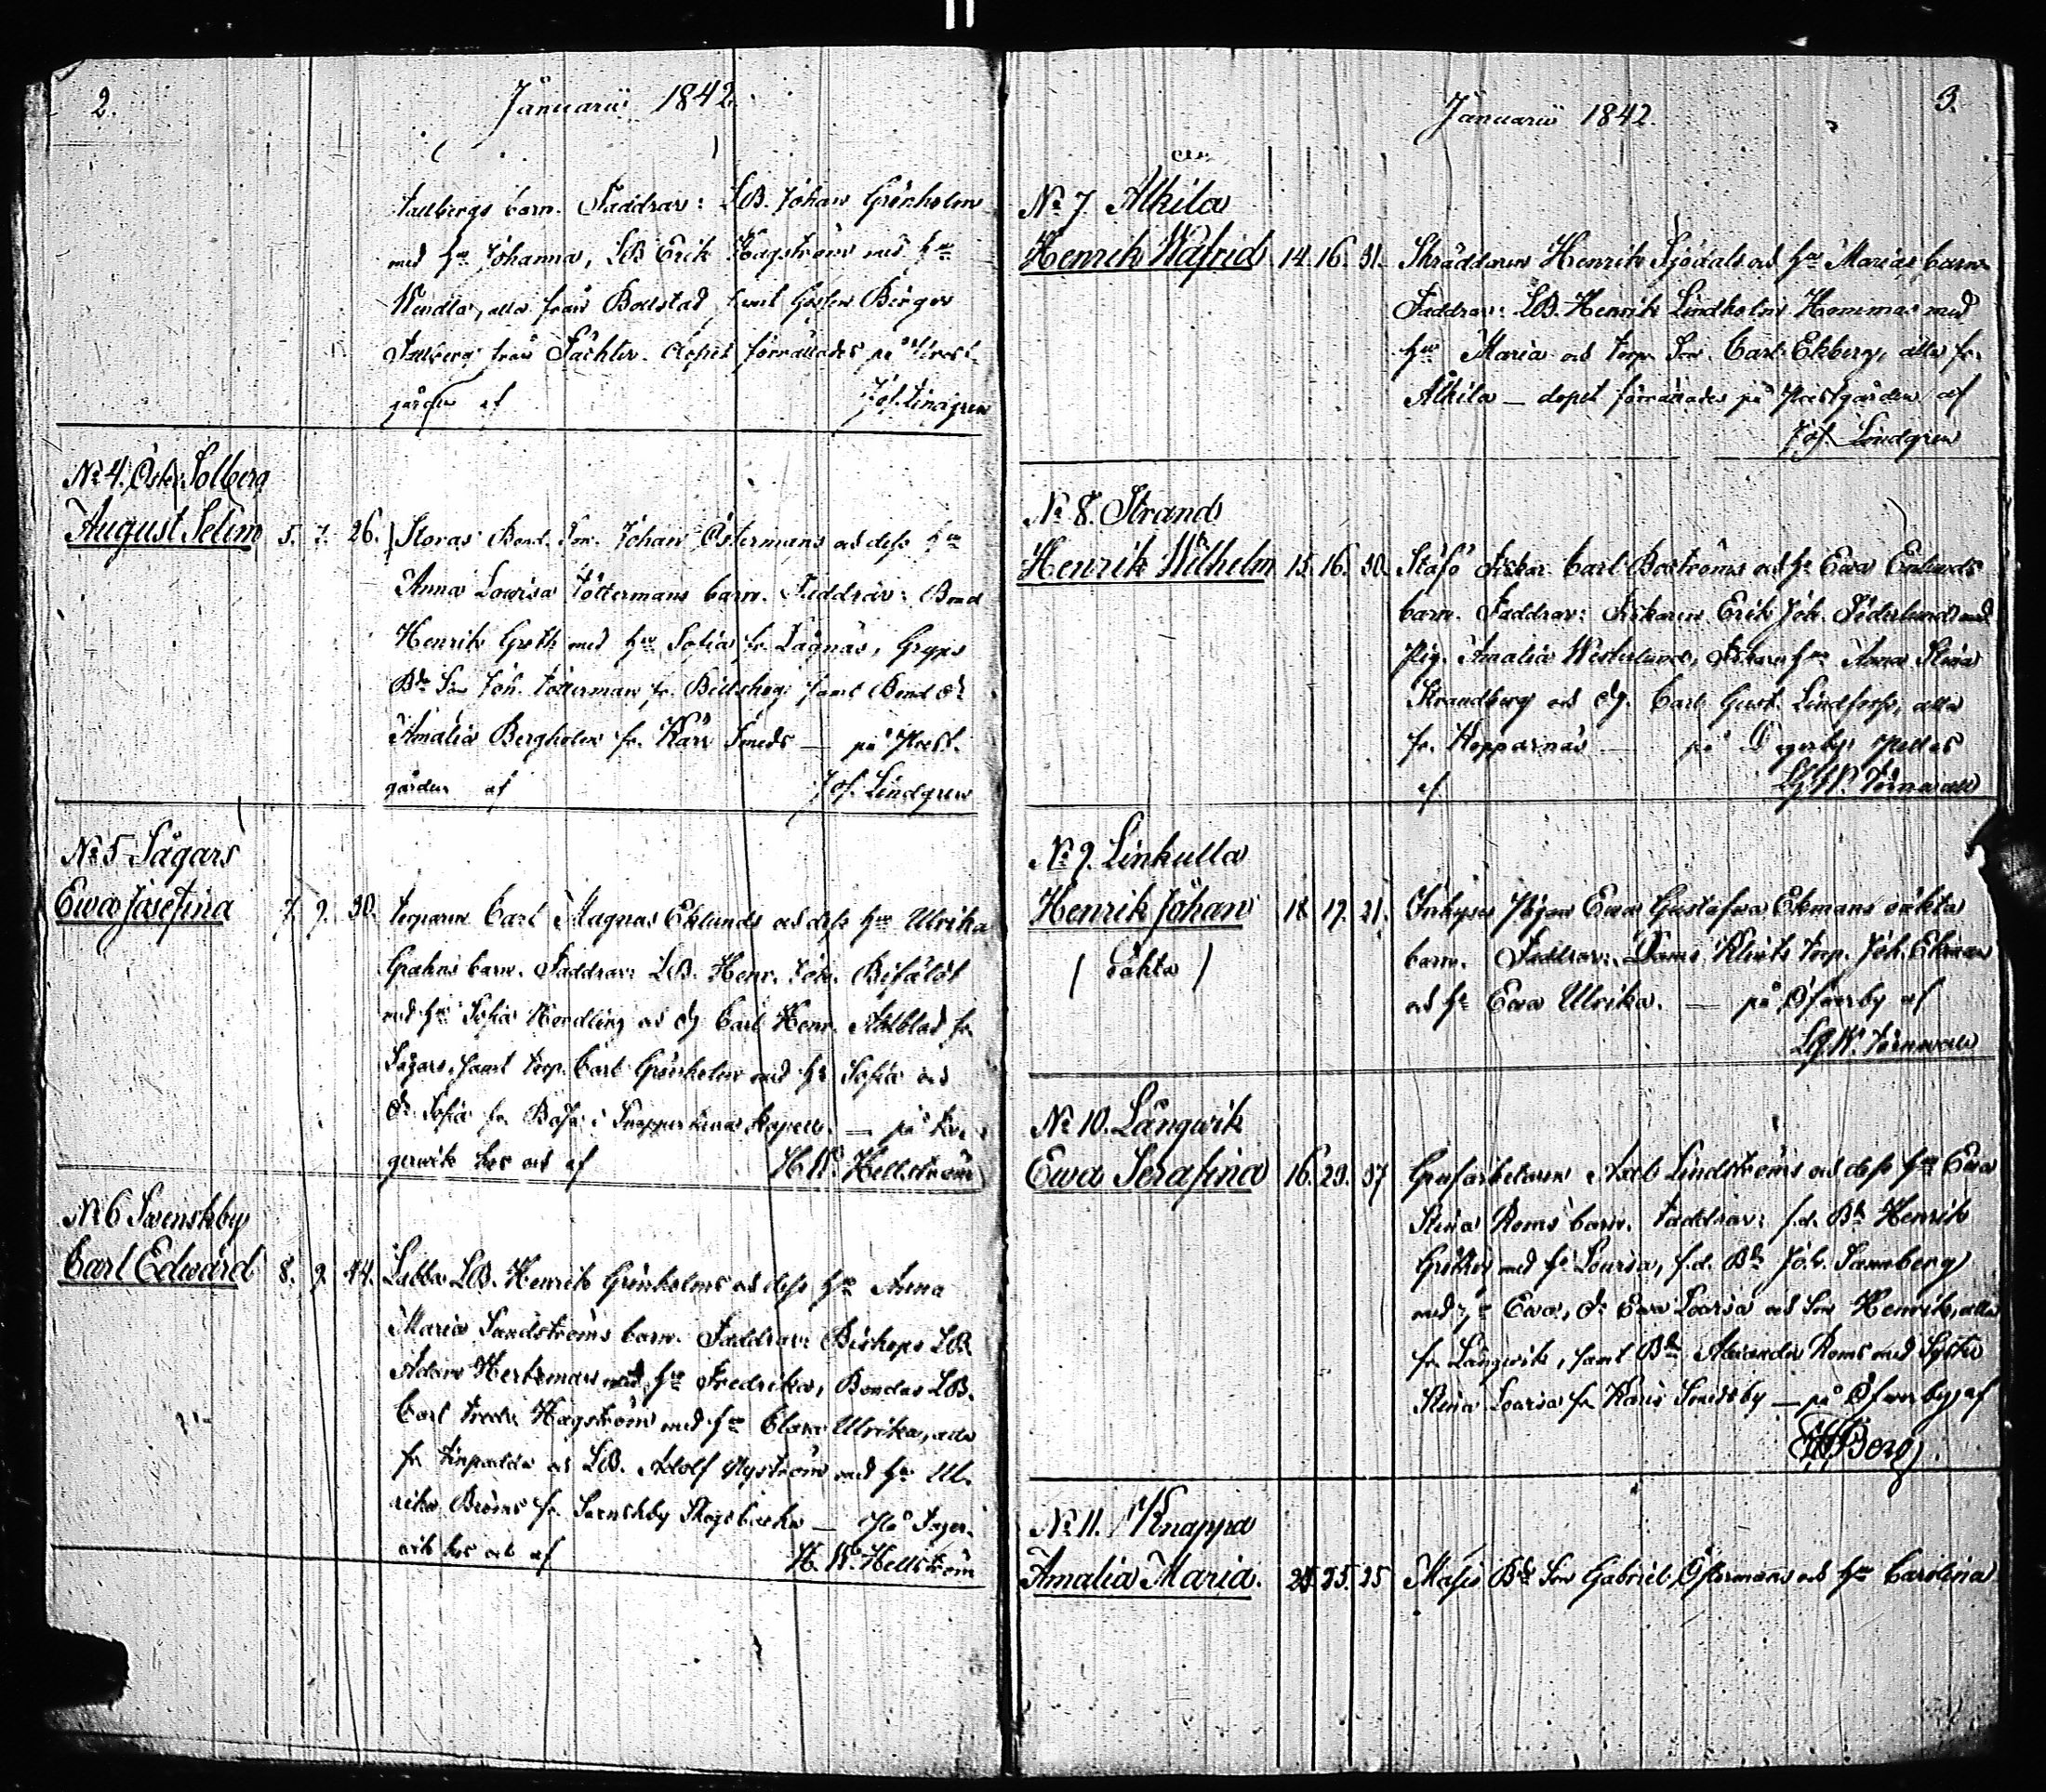 2.
Januarii 1842.
Tallbergs barn. Faddrar: LB. Johan Grönholm
med hu Johanna, LB Erik Hagström med hu
Wendla, alla från Bollstad, samt Gossen Birger
Tallberg från Täckter. dopet förrättades på Prest-
gården af Jos. Lindgren
No 4. Öster Solberg
August Selim 5. 7. 26. Storas Bond. Son. Johan Östermans och dess hu
Anna Lovisa Töttermans barn. Faddrar: Bond
Henrik Groth med hu Sofia fr. Lagnäs, Gryps
Bde Son Joh. Tötterman fr. Billskog samt Bond dr
Amalia Bergholm fr. Karr Smeds — på Prest-
gården af Jos. Lindgren
No 5 Sågars
Ewa Josefina 7. 9. 30. Torparen Carl Magnus Eklunds och dess hu Ulrika
Grahns barn. Faddrar: LB. Henr. Joh.
med hu Sofia Nordling och dg Carl Henr. Ahlblad fr.
Sågars, samt torp. Carl Grönholm med hu Sofia och
dr Sofia fr. Båsa i Snappertuna Kapell. — på
gervik hos och af H. W. Hellström
No 6 Svenskby
Carl Edward 8. 9. 44. Labbas LB. Henrik Grönholms och dess hu Anna
Maria Sandströms barn. Faddrar: Biskops LB.
Adam Hertsman med hu Fredrika, Bondas LB.
Carl Fredr. Hagström med hu Clara Ulrika, alla
fr. och LB. Adolf Nyström med hu Ul-
rika Bröms fr. Svenskby Skogsbacka — På Fager-
vik hos och af H. W. Hellström
3.
Januarii 1842.
No 7. Alkila
Henrik Wäfrid 14. 16. 31. Skräddaren Henrik Sjödals och hu Marias barn
Faddrar: LB. Henrik Lindholm Hommas med
hu Maria och torp. Son. Carl Ekberg, alla fr.
Alkila — dopet förrättades på Prestgården af
Jos. Lindgren
No 8. Strand
Henrik Wilhelm 15. 16. 30. Stafö Fiskar. Carl Boströms och hu Ewa Enlunds
barn. Faddrar: Fiskaren Erik Joh. Söderlund med
Pig. Amalia Westerlund, Fiskare hu Anna Stina
Strandberg och dg. Carl Gust. Lindfors, alla
fr. Kopparnäs — på Degerby Pellas
af LG. W. Törnwall
No 9. Linkulla
Henrik Johan 18. 19. 21. Pigan Ewa Gustafva Ekmans oäkta
(oäkta) barn. Faddrar: Dams Klints torp. Joh. Ekman
och hu Ewa Ulrika. — på Öfverby af
LG. W. Törnwall
No 10. Långwik
Ewa Serafina 16. 29. 37 Grufarbetaren Axel Lindströms och dess hu Ewa
Stina Roms barn. Faddrar: f.d. Bd Henrik
med hu Lovisa, f.d. Bd Joh. Sannberg
med hu Ewa, dr Ewa Lovisa och Son Henrik, alla
fr. Långvik, samt Bde Alexander Roms med Syster
Stina Lovisa fr. Karis Smedsby — på Öfverby af
Borg.
No 11. Knappa
Amalia Maria. 24. 25. 25 Masis Bde Son Gabriel Östermans och hu Carolina